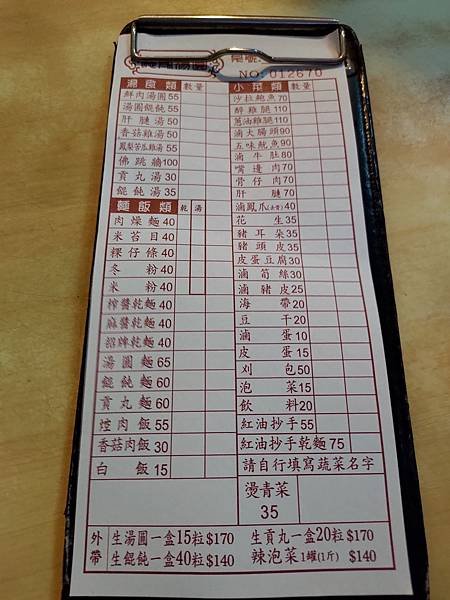 桌號
NO: 012670
湯食類 數量
鮮肉湯圓 55
湯圓餛飩 55
肝腱湯 50
香菇雞湯 50
鳳梨苦瓜雞湯 55
佛跳牆 100
貢丸湯 30
餛飩湯 35
麵飯類 乾 湯
肉燥麵 40
米苔目 40
粿仔條 40
冬粉 40
米粉 40
榨醬乾麵 40
麻醬乾麵 40
招牌乾麵 40
湯圓麵 65
餛飩麵 60
貢丸麵 60
焢肉飯 55
香菇肉飯 30
白飯 15
小菜類 數量
沙拉鮑魚 70
醉雞腿 110
蔥油雞腿 110
滷大腸頭 90
五味魷魚 90
滷牛肚 80
嘴邊肉 70
骨仔肉 70
肝腱 70
滷鳳爪(去骨) 40
花生 35
豬耳朵 35
豬頭皮 35
皮蛋豆腐 30
滷筍絲 30
滷豬皮 25
海帶 20
豆干 20
滷蛋 10
皮蛋 15
刈包 50
泡菜 15
飲料 20
紅油抄手 55
紅油抄手乾麵 75
請自行填寫蔬菜名字
燙青菜
35
外帶
生湯圓一盒15粒$170 生貢丸一盒20粒$170
生餛飩一盒40粒$140 辣泡菜1罐(1斤) $140